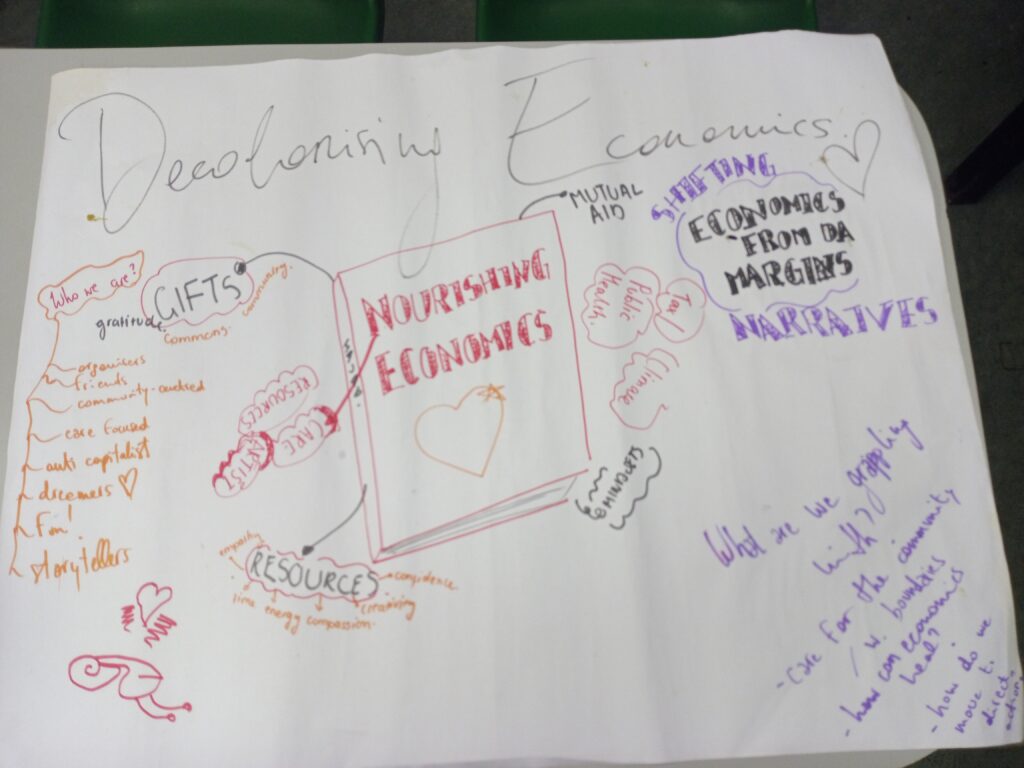 Decolonising Economics.
MUTUAL
AID
SHIFTING
ECONOMICS
FROM DA
MARGINS
NARRATIVES
Who we are?
GIFTS
gratitude
commons.
community.
organisers
friends
community-centred
care focused
anti capitalist
dreamers
Fun!
storytellers
NOURISHING
ECONOMICS
Tax!
Public
Health.
Climate
MINDSETS
RESOURCES
CARE
RESOURCES
empathy
time
energy
compassion.
confidence
What are we grappling
with?
- care for the community
w. boundaries
- how can economics
heal?
- how do we
move to
direct
action.